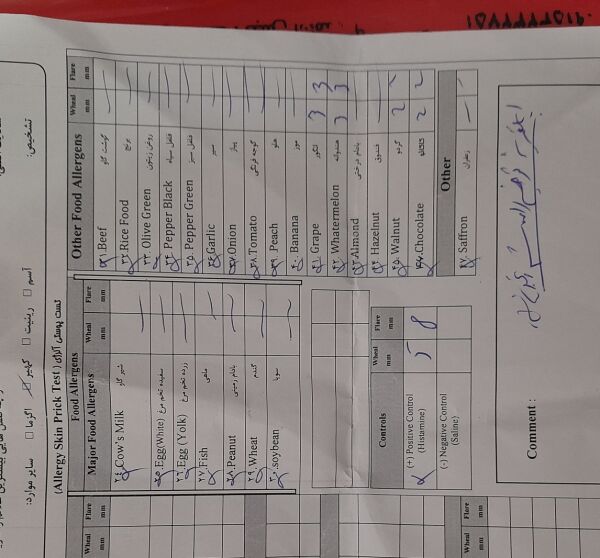 تشخیص:
آسم □ رینیت □ کهیر □ اگزما □ سایر موارد:
تست پوستی آلرژی (Allergy Skin Prick Test)
Food Allergens
Major Food Allergens Wheal mm Flare mm
۲۴.Cow's Milk شیر گاو —
۲۵.Egg(White) سفیده تخم مرغ —
۲۶.Egg (Yolk) زرده تخم مرغ —
۲۷.Fish ماهی —
۲۸.Peanut بادام زمینی —
۲۹.Wheat گندم —
۳۰.soybean سویا —
Other Food Allergens Wheal mm Flare mm
۳۱.Beef گوشت گاو — —
۳۲.Rice Food برنج — —
۳۳.Olive Green روغن زیتون — —
۳۴.Pepper Black فلفل سیاه — —
۳۵.Pepper Green فلفل سبز — —
۳۶.Garlic سیر — —
۳۷.Onion پیاز — —
۳۸.Tomato گوجه فرنگی — —
۳۹.Peach هلو — —
۴۰.Banana موز — —
۴۱.Grape انگور 3 3
۴۲.Whatermelon هندوانه 3 3
۴۳.Almond بادام درختی — —
۴۴.Hazelnut فندوق — —
۴۵.Walnut گردو 2
۴۶.Chocolate کاکائو 2 2
Other
۴۷.Saffron زعفران — —
Controls Wheal mm Flare mm
(+) Positive Control (Histamine) 5 8
(-) Negative Control (Saline)
Comment :